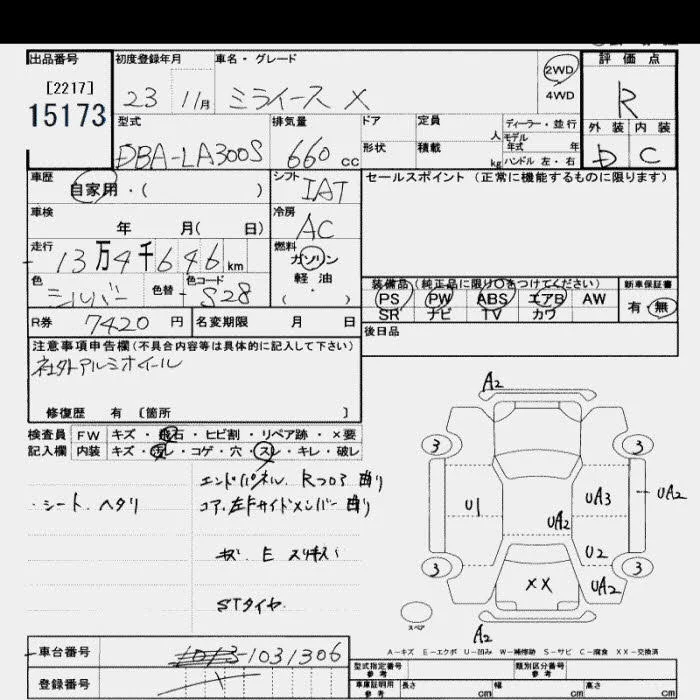 出品番号 初度登録年月 車名・グレード 2WD 評価点
[2217] 23 11月 ミライース X 4WD R
15173 型式 排気量 ドア 定員 人 ディーラー・並行 外装 内装
モデル
DBA-LA300S 660cc 形状 積載 kg 年式 年 D C
ハンドル 左・右
車歴 シフト セールスポイント (正常に機能するものに限ります)
自家用・( ) IAT
車検 冷房
年 月( 日) AC
走行 燃料
13万4千646km ガソリン
色 色替 色コード 軽油 装備品(純正品に限り○をつけてください) 新車保証書
シルバー S28 (・) PS PW ABS エアB AW 有・無
SR ナビ TV カワ
R券 7420円 名変期限 月 日 後日品
注意事項申告欄(不具合内容等は具体的に記入して下さい)
社外アルミホイール
修復歴 有 〔箇所 〕
検査員 FW キズ・飛石・ヒビ割・リペア跡・×要
記入欄 内装 キズ・汚レ・コゲ・穴・スレ・キレ・破レ
エンドパネル、Rフロア曲り
・シート、ヘタリ コア、左Fサイドメンバー曲り
キズ E スリキズ
STタイヤ
A2
3 3
U1 UA3 UA2
UA2
U2
3 3
XX UA2
スペア
A2
A-キズ E-エクボ U-凹み W-補修跡 S-サビ C-腐食 XX-交換済
車台番号 1031306
登録番号
型式指定番号 参考 類別区分番号 参考
車庫証明用 参考 長さ cm 幅 cm 高さ cm